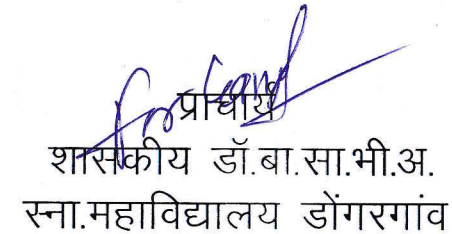 प्राचार्य
शासकीय डॉ.बा.सा.भी.अ.
स्ना.महाविद्यालय डोंगरगांव